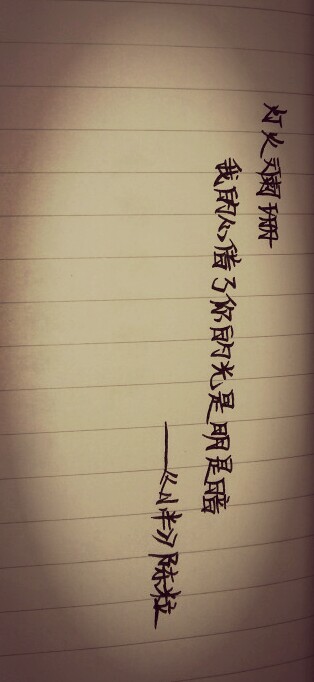 灯火阑珊
我的心借了你的光是明是暗
——《小半》陈粒